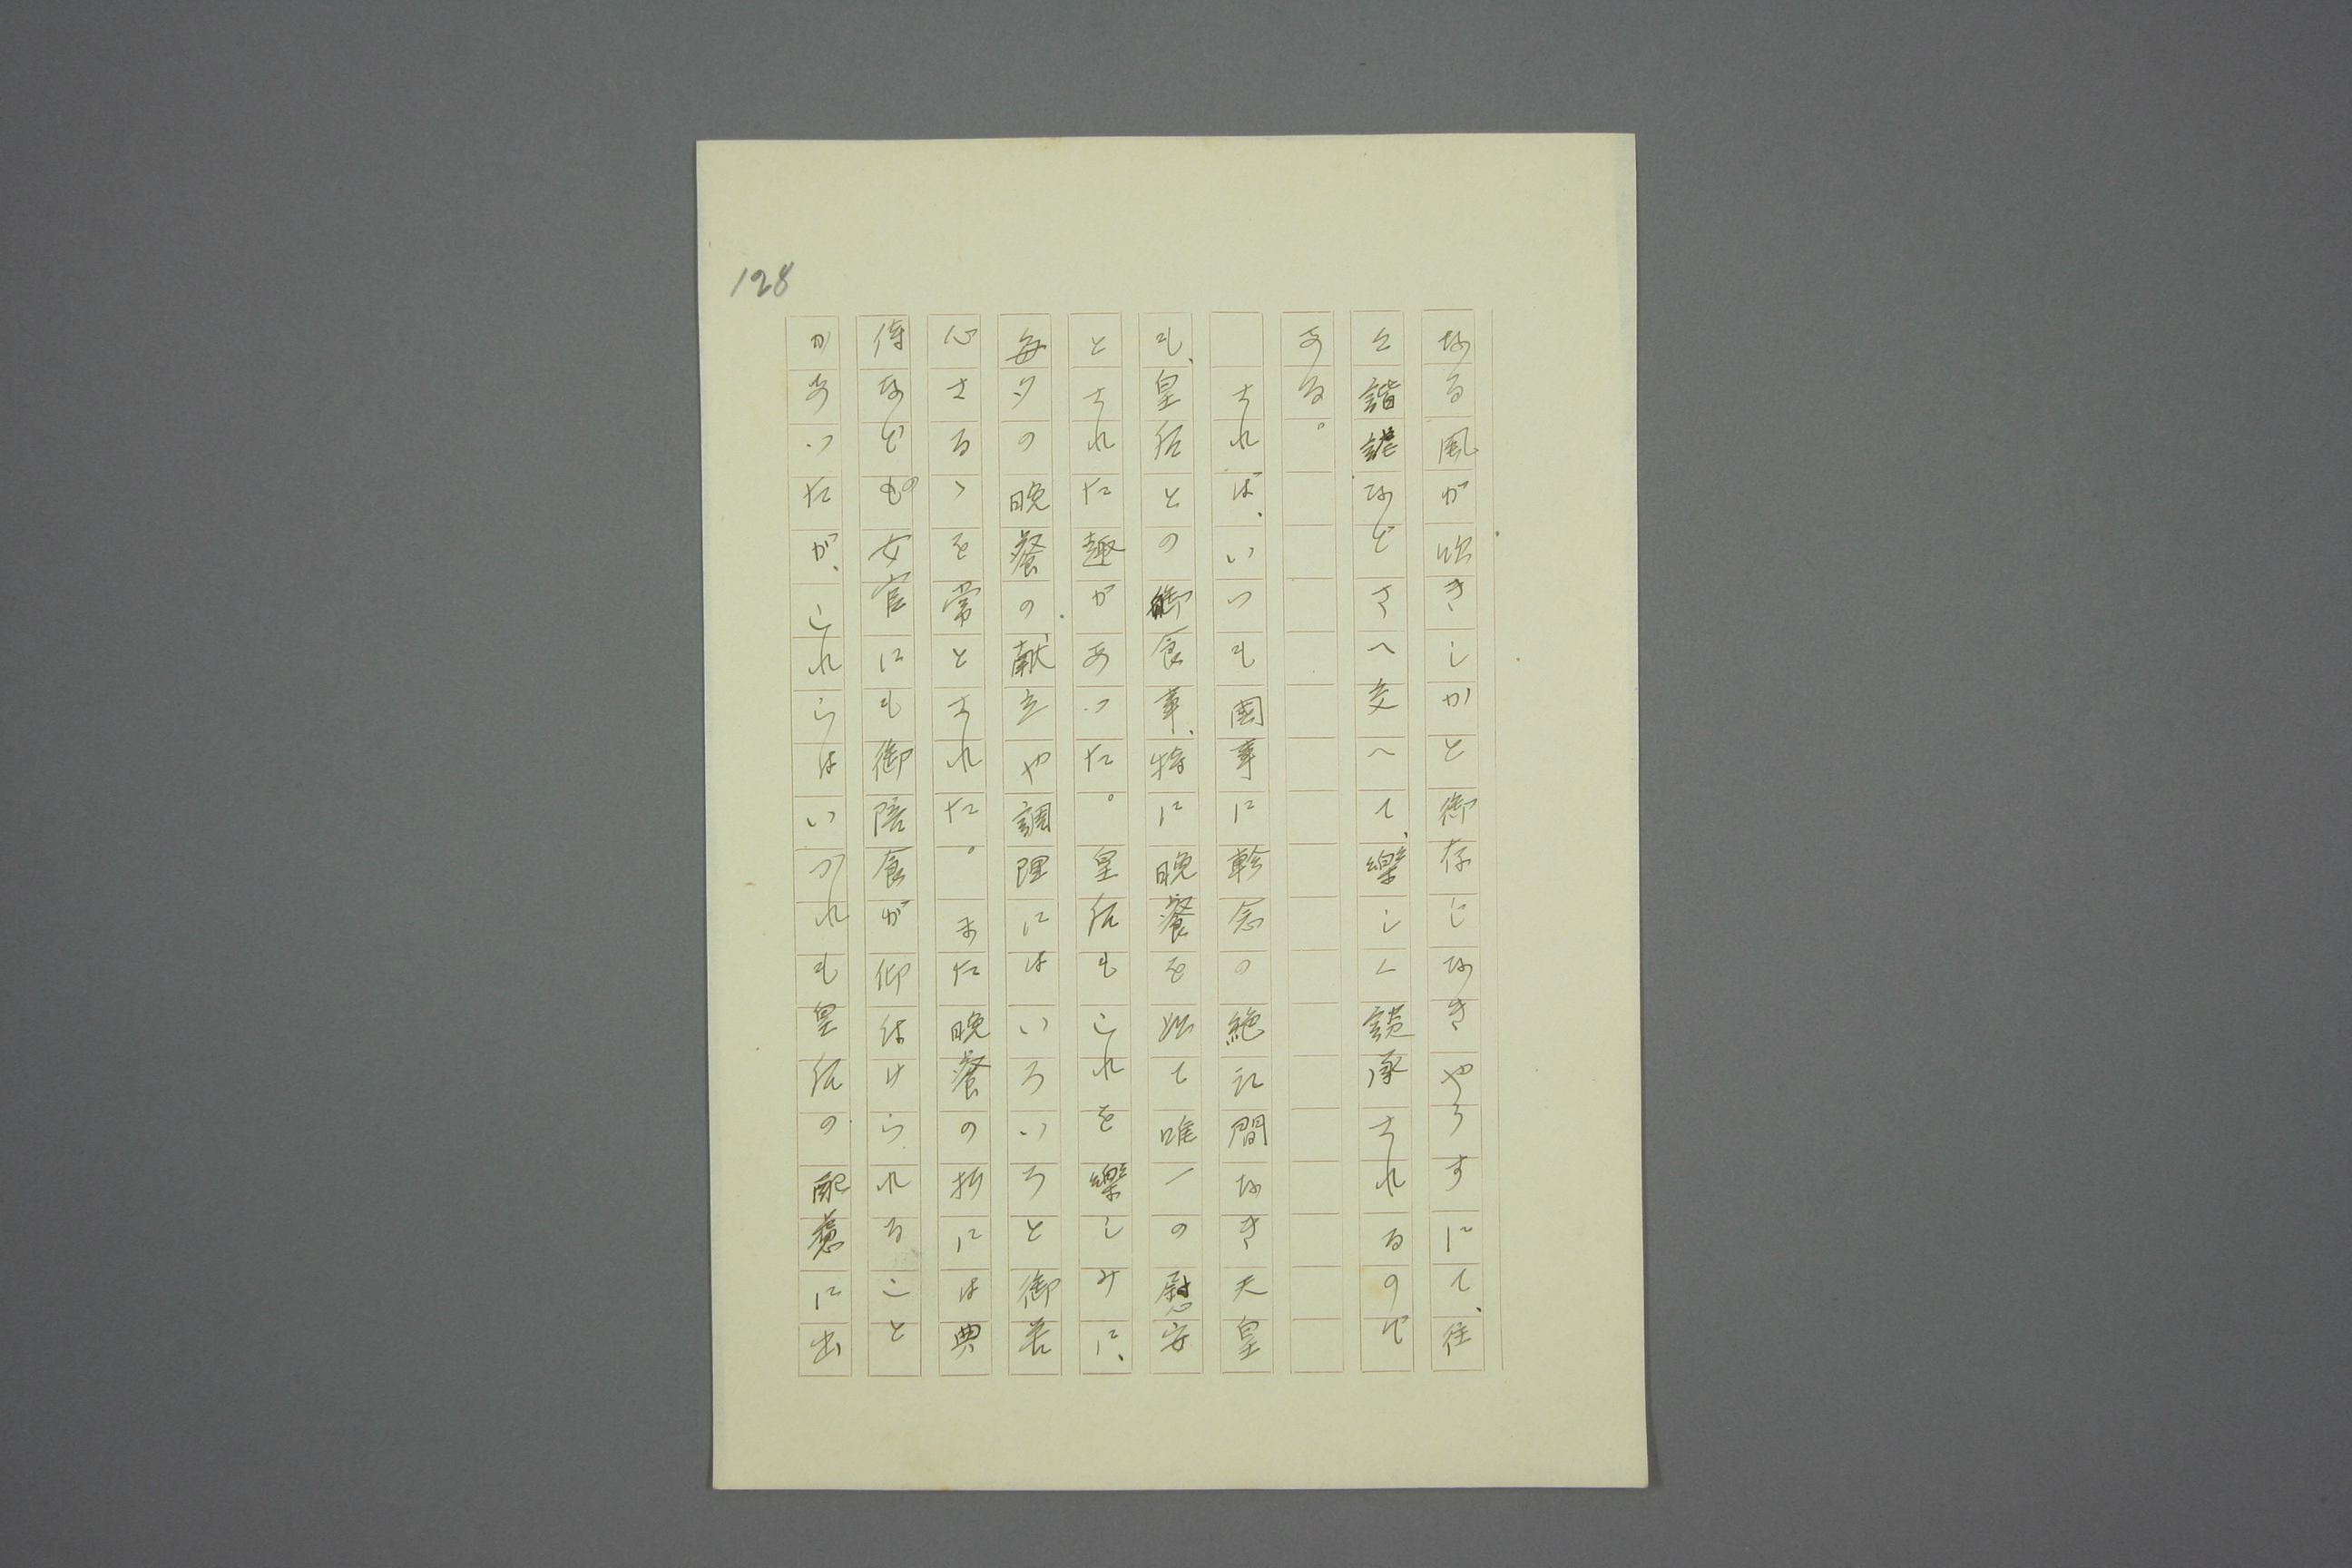 128
なる風が吹きしかと御存じなきやうすにて、往
々諧謔などさへ交へて、樂しく談承されるので
ある。
されば、いつも國事に軫念の絶江間なき天皇
も、皇后との御食事、特に晩餐を以て唯一の慰安
とされた趣があつた。皇后もこれを樂しみに、
毎夕の晩餐の献立や調理にはいろいろと御苦
心さるゝを常とされた。また晩餐の折には典
侍などの女官にも御陪食が仰付けられること
があつたが、これらはいづれも皇后の配慮に出